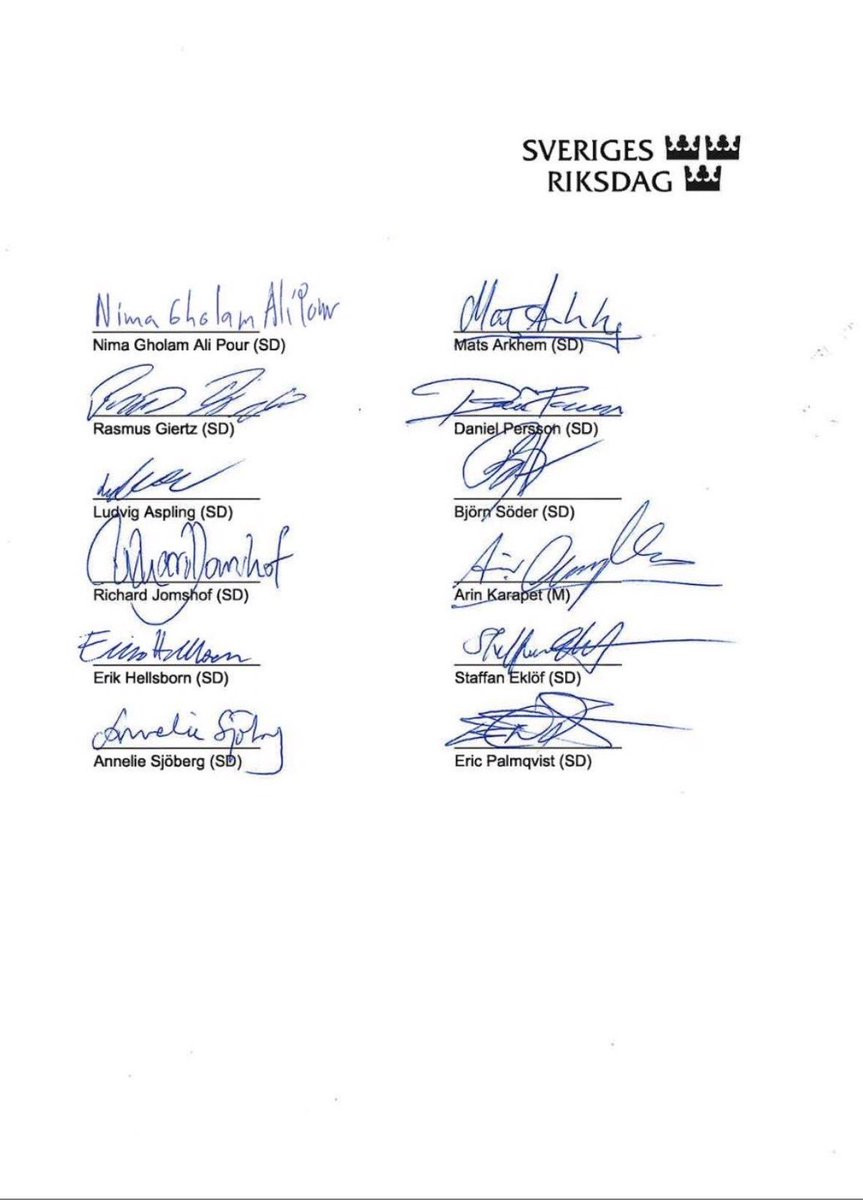 SVERIGES
RIKSDAG
Nima Gholam Ali Pour
Nima Gholam Ali Pour (SD)
Mats Arkhem (SD)
Rasmus Giertz (SD)
Daniel Persson (SD)
Ludvig Aspling (SD)
Björn Söder (SD)
Richard Jomshof
Richard Jomshof (SD)
Arin Karapet (M)
Erik Hellsborn (SD)
Staffan Eklöf (SD)
Annelie Sjöberg
Annelie Sjöberg (SD)
Eric Palmqvist (SD)